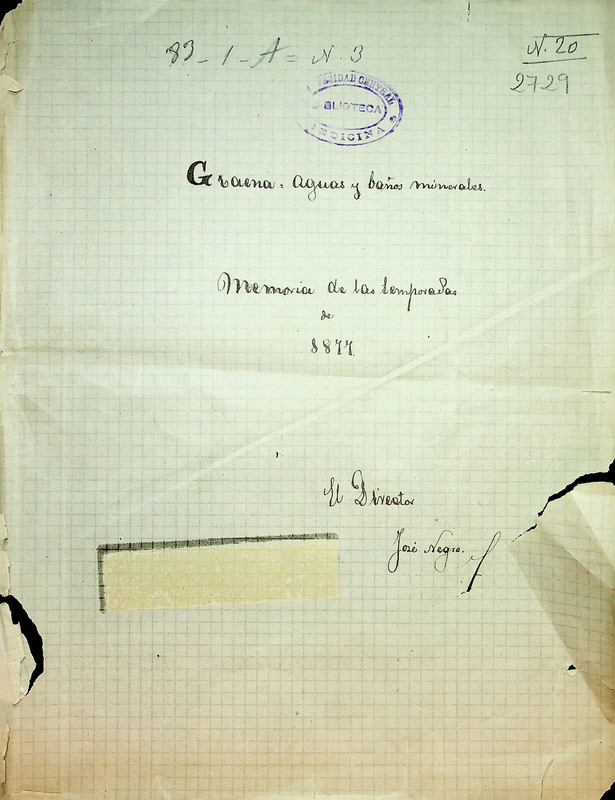 83-1-A= N. 3
N. 20
2729
BIBLIOTECA
MEDICINA
Graena = aguas y baños minerales.
Memoria de las temporadas
de
1877.
El Director
José Negro.